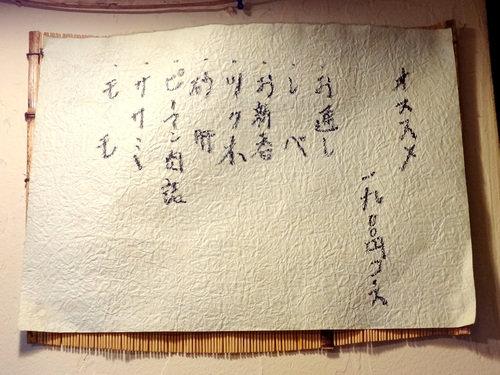 オススメ
一九〇〇円コース
・お通し
・レバ
・お新香
・ツクネ
・砂肝
・ピーマン肉詰
・ササミ
・モモ